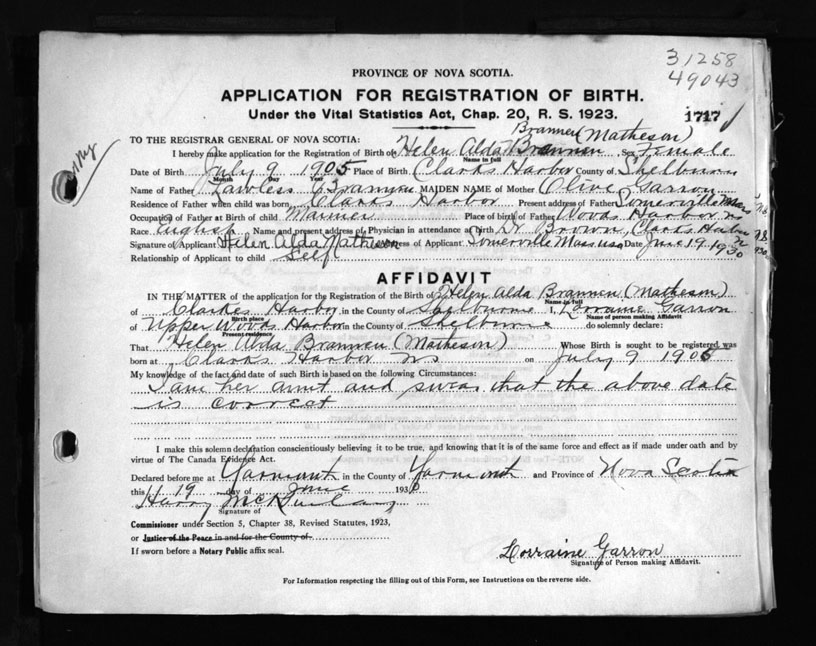 31258
49043
PROVINCE OF NOVA SCOTIA.
APPLICATION FOR REGISTRATION OF BIRTH.
Under the Vital Statistics Act, Chap. 20, R. S. 1923.
1717
Brannen (Matheson)
TO THE REGISTRAR GENERAL OF NOVA SCOTIA:
I hereby make application for the Registration of Birth of Helen Alda Brannen Sex Female
Name in full
Date of Birth July 9 1905 Place of Birth Clarks Harbor County of Shelburne
Month Day Year
Name of Father Lawless Brannen MAIDEN NAME of Mother Olive Garron
Residence of Father when child was born, Clarks Harbor Present address of Father Somerville Mass
Occupation of Father at Birth of child Mariner Place of birth of Father Woods Harbor NS
Race English Name and present address of Physician in attendance at Birth Dr Brown, Clarks Harbor
Signature of Applicant Helen Alda Matheson Address of Applicant Somerville Mass USA Date June 19 1930
Relationship of Applicant to child Self
AFFIDAVIT
IN THE MATTER of the application for the Registration of the Birth of Helen Alda Brannen (Matheson)
Name in full
of Clarkes Harbor, in the County of Shelburne I, Lorraine Garron
Birth place Name of person making Affidavit
of Upper Woods Harbor in the County of Shelburne do solemnly declare:
Present residence
That Helen Alda Brannen (Matheson) Whose Birth is sought to be registered was
born at Clarks Harbor NS on July 9 1905
My knowledge of the fact and date of such Birth is based on the following Circumstances:
I am her aunt and swear that the above date
is correct
I make this solemn declaration conscientiously believing it to be true, and knowing that it is of the same force and effect as if made under oath and by
virtue of The Canada Evidence Act.
Declared before me at Yarmouth in the County of Yarmouth and Province of Nova Scotia
this 19 day of June 1930
Harry
Signature of
Commissioner under Section 5, Chapter 38, Revised Statutes, 1923,
or Justice of the Peace in and for the County of
If sworn before a Notary Public affix seal.
Lorraine Garron
Signature of Person making Affidavit.
For Information respecting the filling out of this Form, see Instructions on the reverse side.